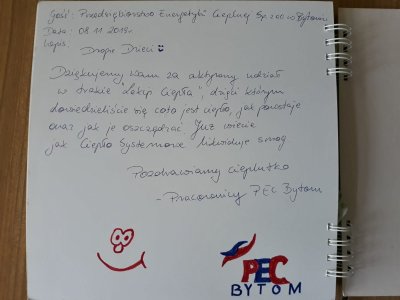 Gość: Przedsiębiorstwo Energetyki Cieplnej Sp. z o.o. w Bytomiu
Data: 08.11.2019r.
Wpis: Drogie Dzieci
Dziękujemy Wam za aktywny udział
w trakcie "Lekcji Ciepła", dzięki którym
dowiedzieliście się co to jest ciepło, jak powstaje
oraz jak je oszczędzać. Już wiecie
jak Ciepło Systemowe likwiduje smog
Pozdrawiamy cieplutko
- Pracownicy PEC Bytom
PEC
BYTOM